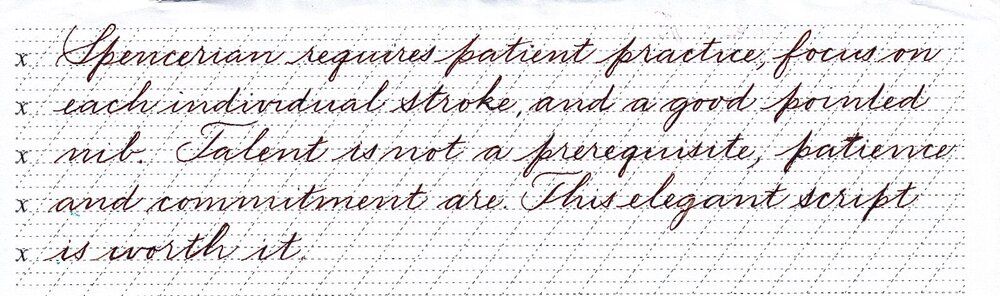 x Spencerian requires patient practice, focus on
x each individual stroke, and a good pointed
x nib. Talent is not a prerequisite, patience
x and commitment are. This elegant script
x is worth it.